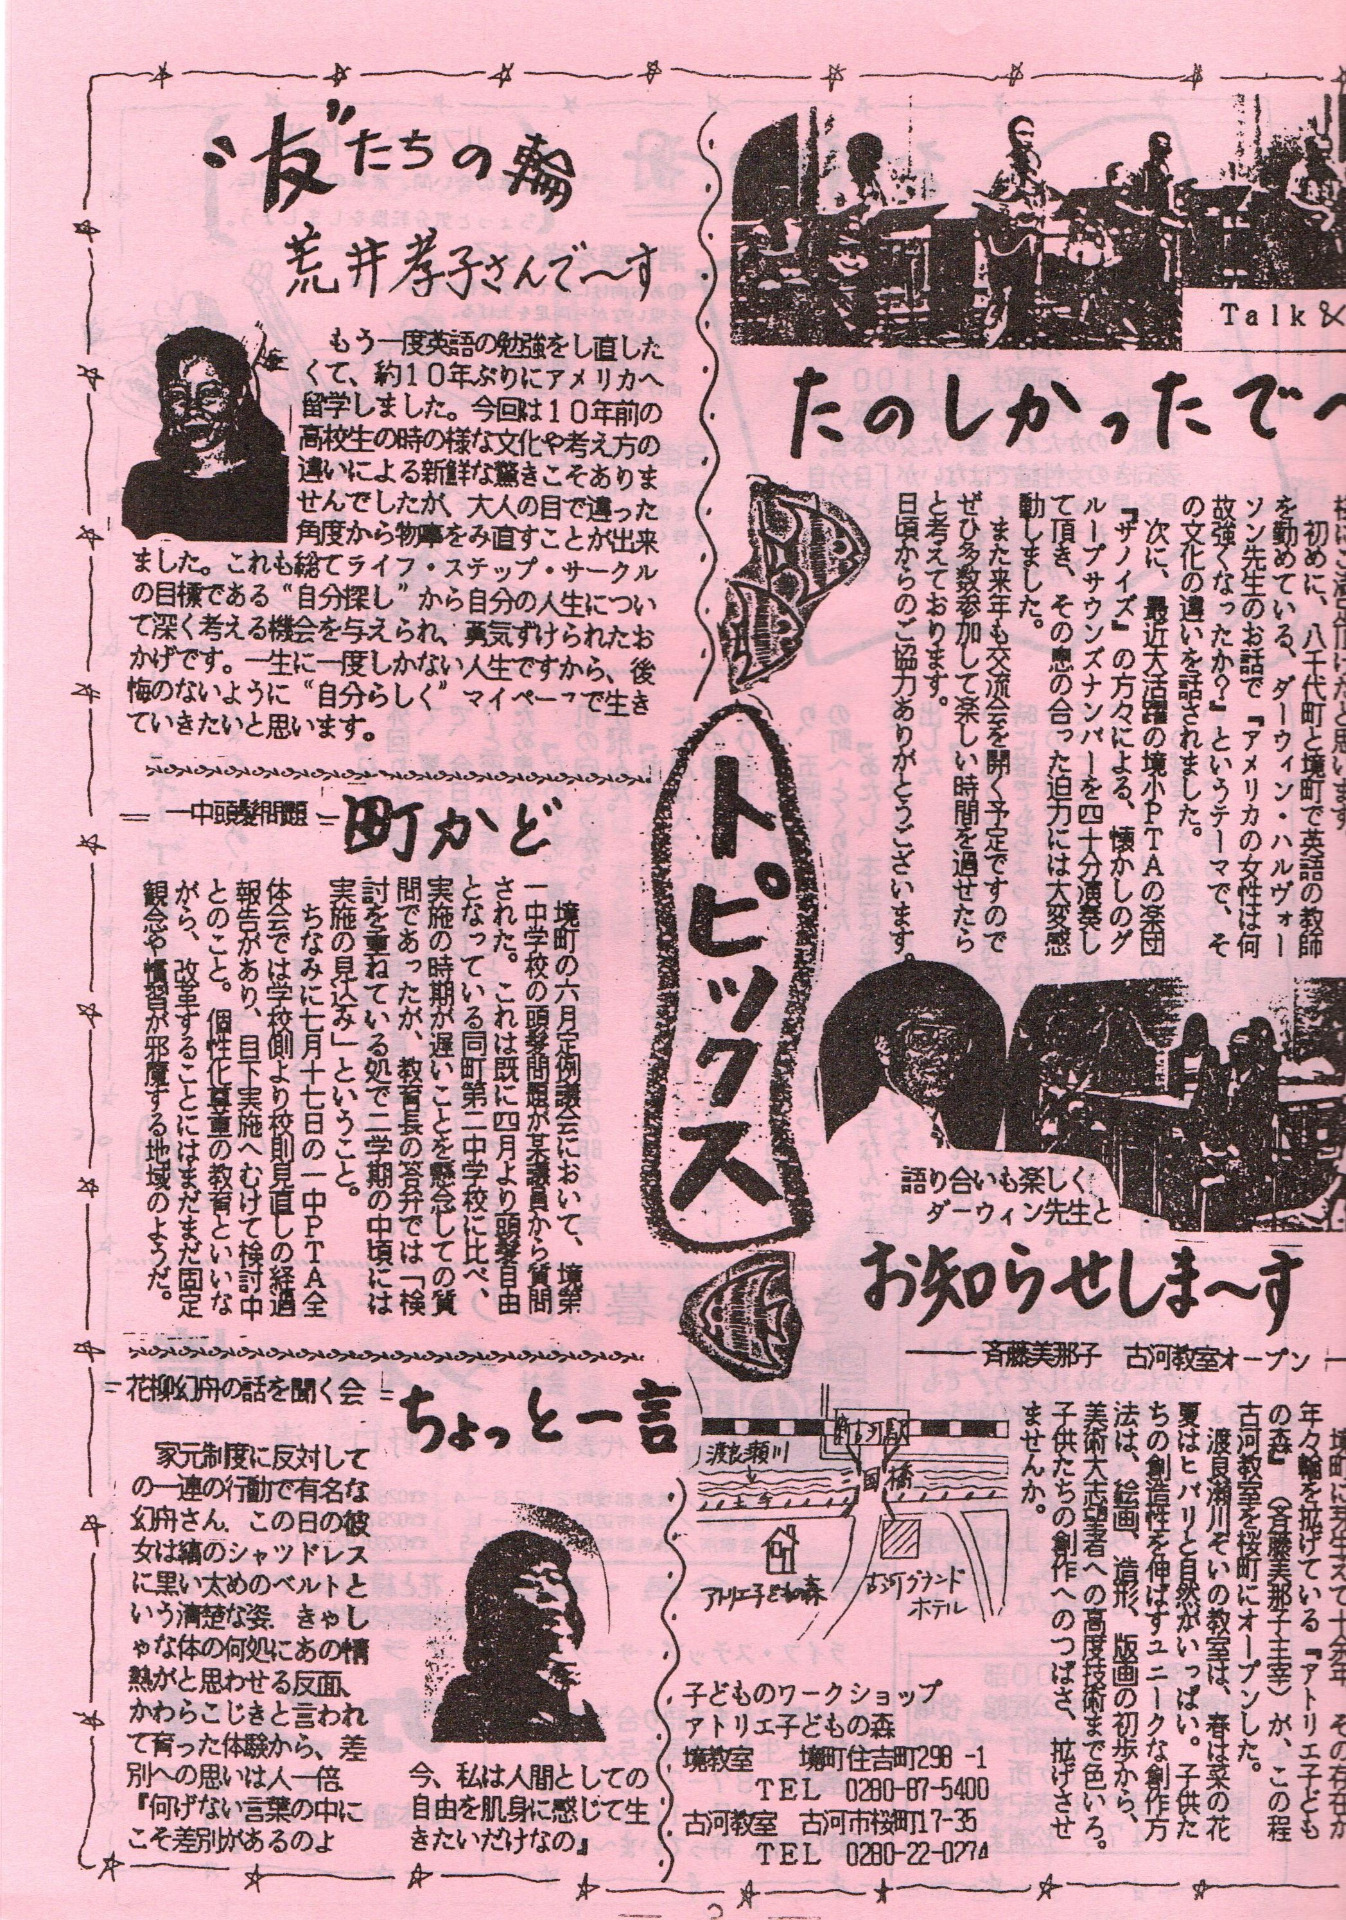 “友”たちの輪
荒井孝子さんで〜す
もう一度英語の勉強をし直した
くて、約10年ぶりにアメリカへ
留学しました。今回は10年前の
高校生の時の様な文化や考え方の
違いによる新鮮な驚きこそありま
せんでしたが、大人の目で違った
角度から物事をみ直すことが出来
ました。これも総てライフ・ステップ・サークル
の目標である“自分探し”から自分の人生につい
て深く考える機会を与えられ、勇気ずけられたお
かげです。一生に一度しかない人生ですから、後
悔のないように“自分らしく”マイペースで生き
ていきたいと思います。
Talk &
たのしかったで〜
様にご満足頂けたと思います。
初めに、八千代町と境町で英語の教師
を勤めている、ダーウィン・ハルヴォー
ソン先生のお話で『アメリカの女性は何
故強くなったか?』というテーマで、そ
の文化の違いを話されました。
次に、最近大活躍の境小PTAの楽団
『ザノイズ』の方々による、懐かしのグ
ループサウンズナンバーを四十分演奏し
て頂き、その息の合った迫力には大変感
動しました。
また来年も交流会を開く予定ですので
ぜひ多数参加して楽しい時間を過せたら
と考えております。
日頃からのご協力ありがとうございます。
トピックス
語り合いも楽しく
ダーウィン先生と
=一中頭髪問題=
町かど
境町の六月定例議会において、境第
一中学校の頭髪問題が某議員から質問
された。これは既に四月より頭髪自由
となっている同町第二中学校に比べ、
実施の時期が遅いことを懸念しての質
問であったが、教育長の答弁では「検
討を重ねている処で二学期の中頃には
実施の見込み」ということ。
ちなみに七月十七日の一中PTA全
体会では学校側より校則見直しの経過
報告があり、目下実施へむけて検討中
とのこと。個性化尊重の教育といいな
がら、改革することにはまだまだ固定
観念や慣習が邪魔する地域のようだ。
お知らせしま〜す
斉藤美那子 古河教室オープン
境町に芽生えて十余年、その存在が
年々輪を拡げている『アトリエ子ども
の森』(斉藤美那子主宰)が、この程
古河教室を桜町にオープンした。
渡良瀬川ぞいの教室は、春は菜の花
夏はヒバリと自然がいっぱい。子供た
ちの創造性を伸ばすユニークな創作方
法は、絵画、造形、版画の初歩から、
美術大志望者への高度技術まで色いろ。
子供たちの創作へのつばさ、拡げさせ
ませんか。
新古河駅
渡良瀬川
橋
アトリエ子どもの森
古河グランド
ホテル
子どものワークショップ
アトリエ子どもの森
境教室 境町住吉町298-1
TEL 0280-87-5400
古河教室 古河市桜町17-35
TEL 0280-22-0274
=花柳幻舟の話を聞く会=
ちょっと一言
家元制度に反対して
の一連の行動で有名な
幻舟さん。この日の彼
女は縞のシャツドレス
に黒い太めのベルトと
いう清楚な姿。きゃし
ゃな体の何処にあの情
熱がと思わせる反面、
かわらこじきと言われ
て育った体験から、差
別への思いは人一倍。
『何げない言葉の中に
こそ差別があるのよ
今、私は人間としての
自由を肌身に感じて生
きたいだけなの』